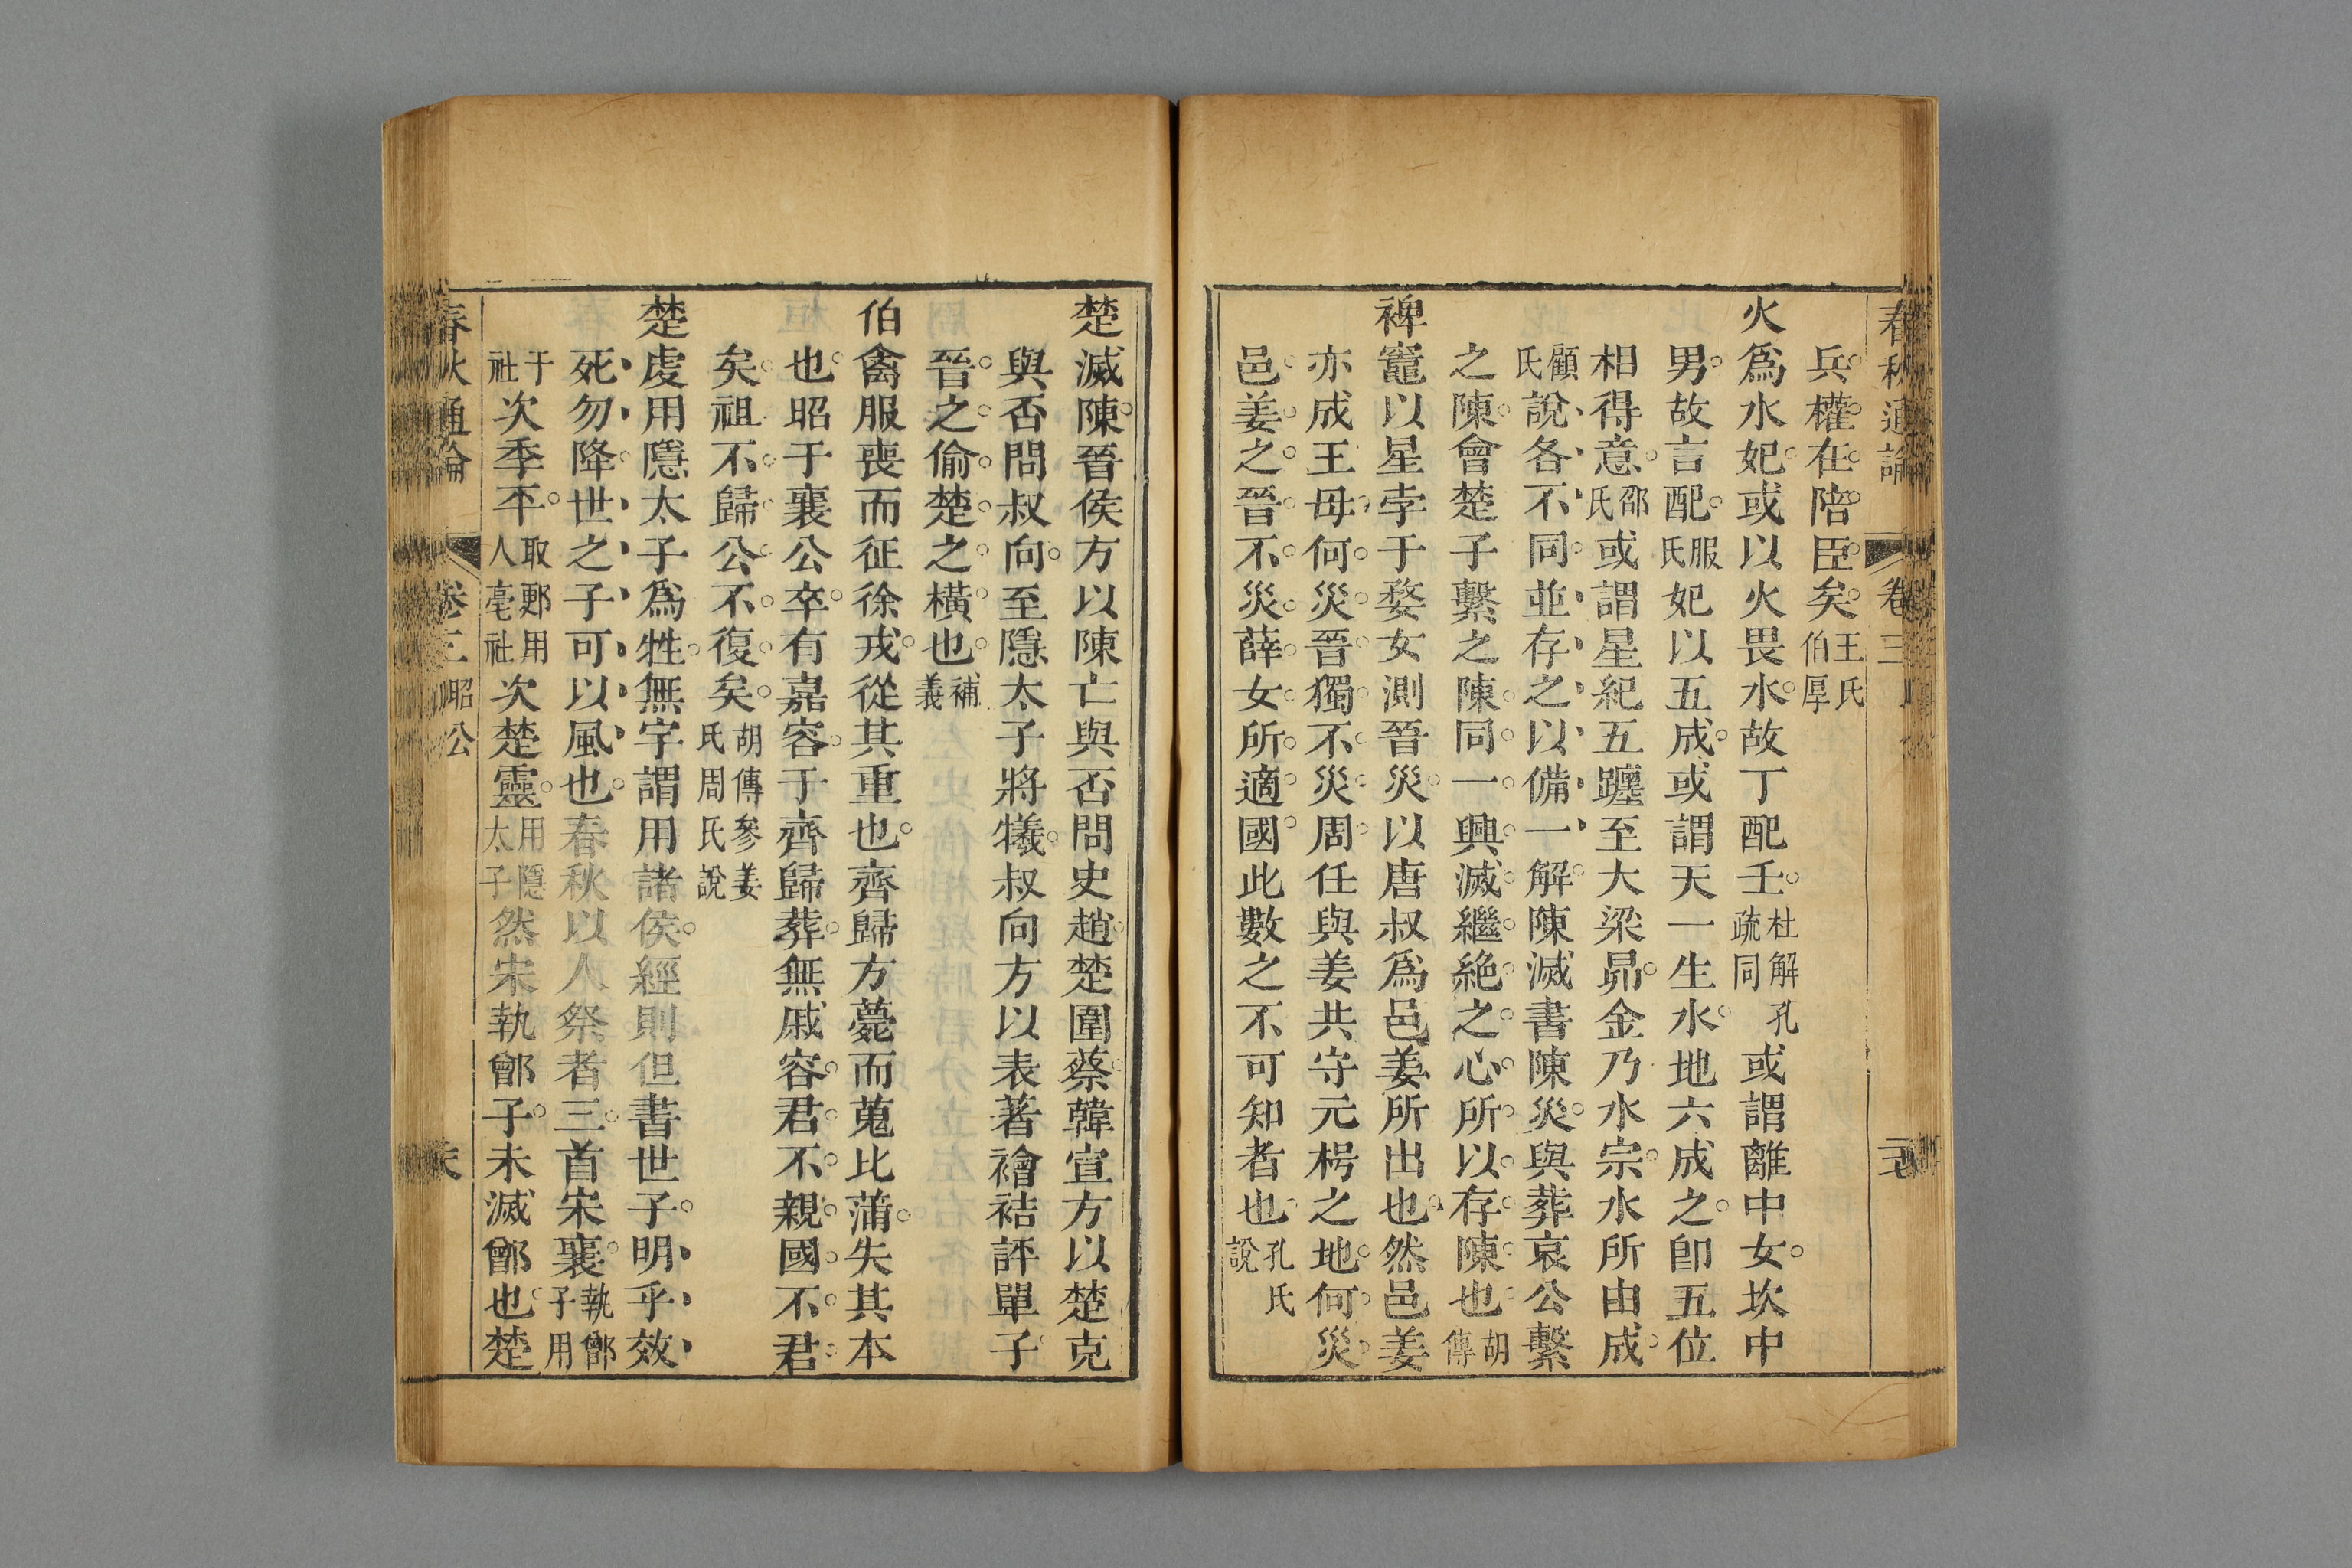 春秋通論 卷三
兵權在陪臣矣王氏伯厚
火爲水妃或以火畏水故丁配壬杜解孔疏同或謂離中女坎中
男故言配服氏妃以五成或謂天一生水地六成之卽五位
相得意邵氏或謂星紀五躔至大梁昴金乃水宗水所由成
顧氏說各不同並存之以備一解陳滅書陳災與葬哀公繫
之陳會楚子繫之陳同一興滅繼絕之心所以存陳也胡傳
裨竈以星孛于婺女測晉災以唐叔爲邑姜所出也然邑姜
亦成王母何災晉獨不災周任與姜共守元枵之地何災
邑姜之晉不災薛女所適國此數之不可知者也孔氏說
楚滅陳晉侯方以陳亡與否問史趙楚圍蔡韓宣方以楚克
與否問叔向至隱太子將犧叔向方以表著襘祮評單子
晉之偷楚之橫也補義
伯禽服喪而征徐戎從其重也齊歸方薨而蒐比蒲失其本
也昭于襄公卒有嘉容于齊歸葬無戚容君不親國不君
矣祖不歸公不復矣胡傳參姜氏周氏說
楚虔用隱太子爲牲無字謂用諸侯經則但書世子明乎效
死勿降世之子可以風也春秋以人祭者三首宋襄執鄫子用
于社次季平取郠用人亳社次楚靈用隱太子然宋執鄫子未滅鄫也楚
春秋通論 卷三 昭公